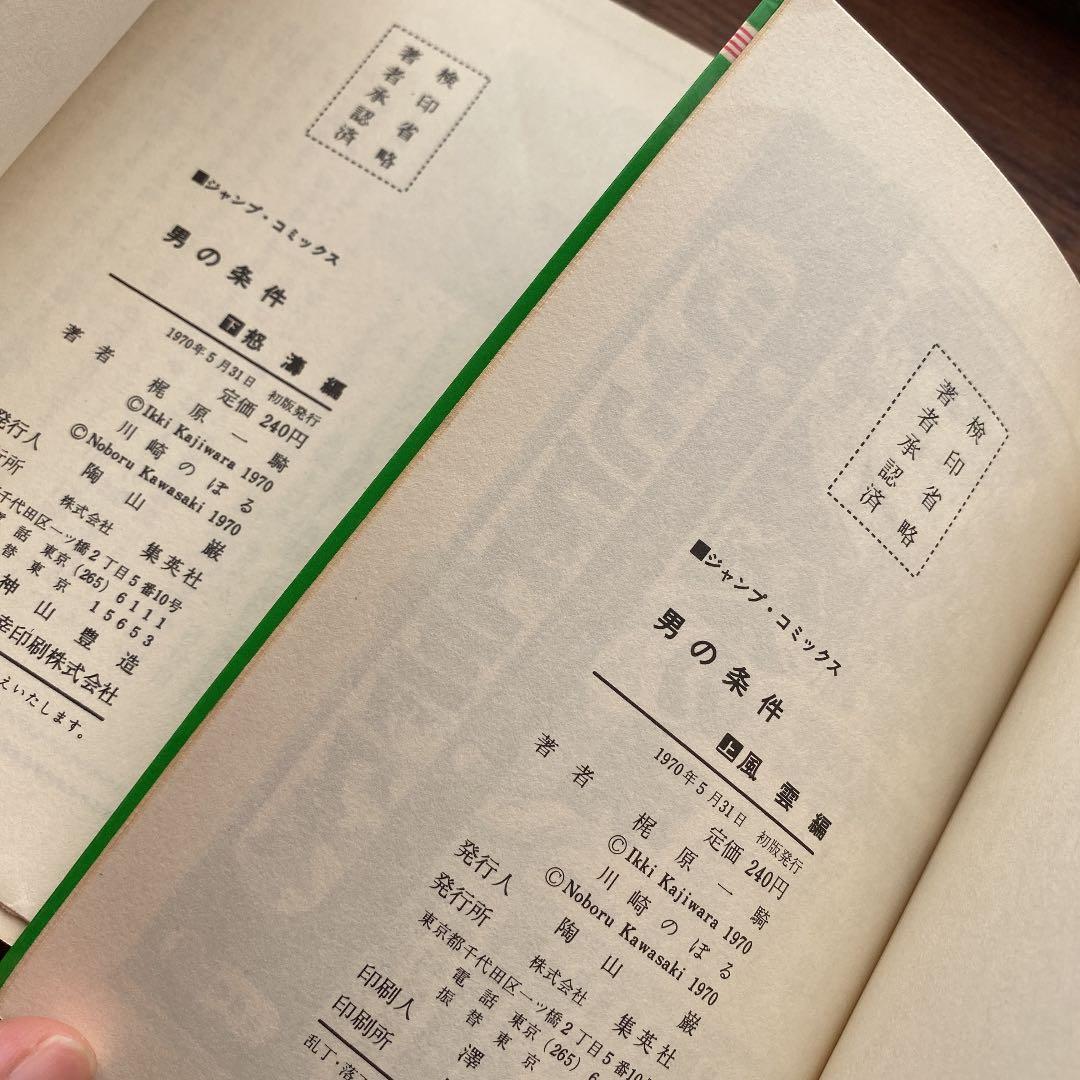 検印省略
著者承認済
■ジャンプ・コミックス
男の条件
下怒濤編
1970年5月31日 初版発行
定価 240円
著者 梶原一騎
©Ikki Kajiwara 1970
川崎のぼる
©Noboru Kawasaki 1970
発行人 陶山巌
株式会社 集英社
千代田区一ツ橋2丁目5番10号
東京(265)6111
替東京 15653
神山豊造
幸印刷株式会社
えいたします。
検印省略
著者承認済
■ジャンプ・コミックス
男の条件
上風雲編
1970年5月31日 初版発行
定価 240円
著者 梶原一騎
©Ikki Kajiwara 1970
川崎のぼる
©Noboru Kawasaki 1970
発行人 陶山巌
発行所 株式会社 集英社
東京都千代田区一ツ橋2丁目5番10
電話 東京(265)6
振替東京
印刷人 澤
印刷所
乱丁・落